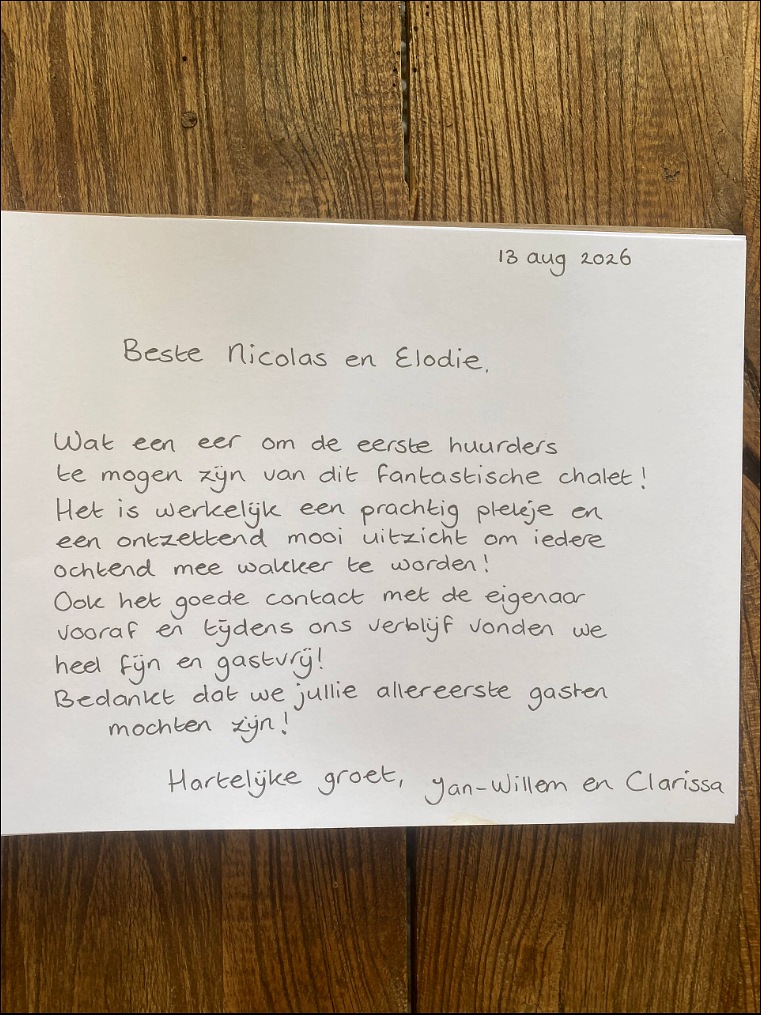 13 aug 2026
Beste Nicolas en Elodie,
Wat een eer om de eerste huurders
te mogen zijn van dit fantastische chalet!
Het is werkelijk een prachtig plekje en
een ontzettend mooi uitzicht om iedere
ochtend mee wakker te worden!
Ook het goede contact met de eigenaar
vooraf en tijdens ons verblijf vonden we
heel fijn en gastvrij!
Bedankt dat we jullie allereerste gasten
mochten zijn!
Hartelijke groet, Jan-Willem en Clarissa